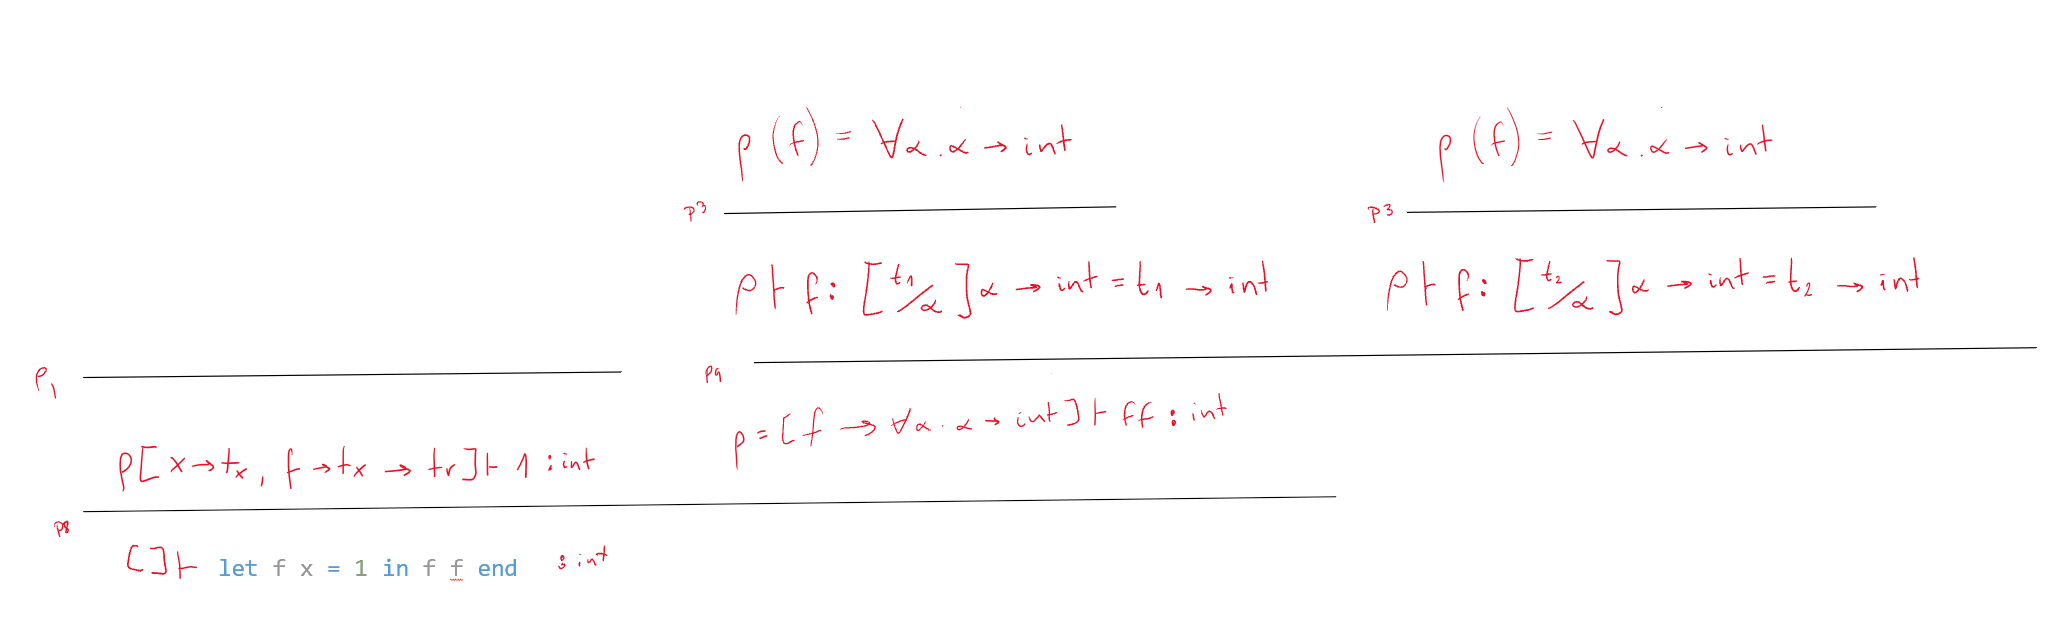 ρ (f) = ∀α . α → int
ρ (f) = ∀α . α → int
p3
p3
ρ ⊢ f : [t1/α] α → int = t1 → int
ρ ⊢ f : [t2/α] α → int = t2 → int
p1
p9
ρ = [f → ∀α . α → int] ⊢ f f : int
ρ[x → tx, f → tx → tr] ⊢ 1 : int
p8
[] ⊢ let f x = 1 in f f end : int